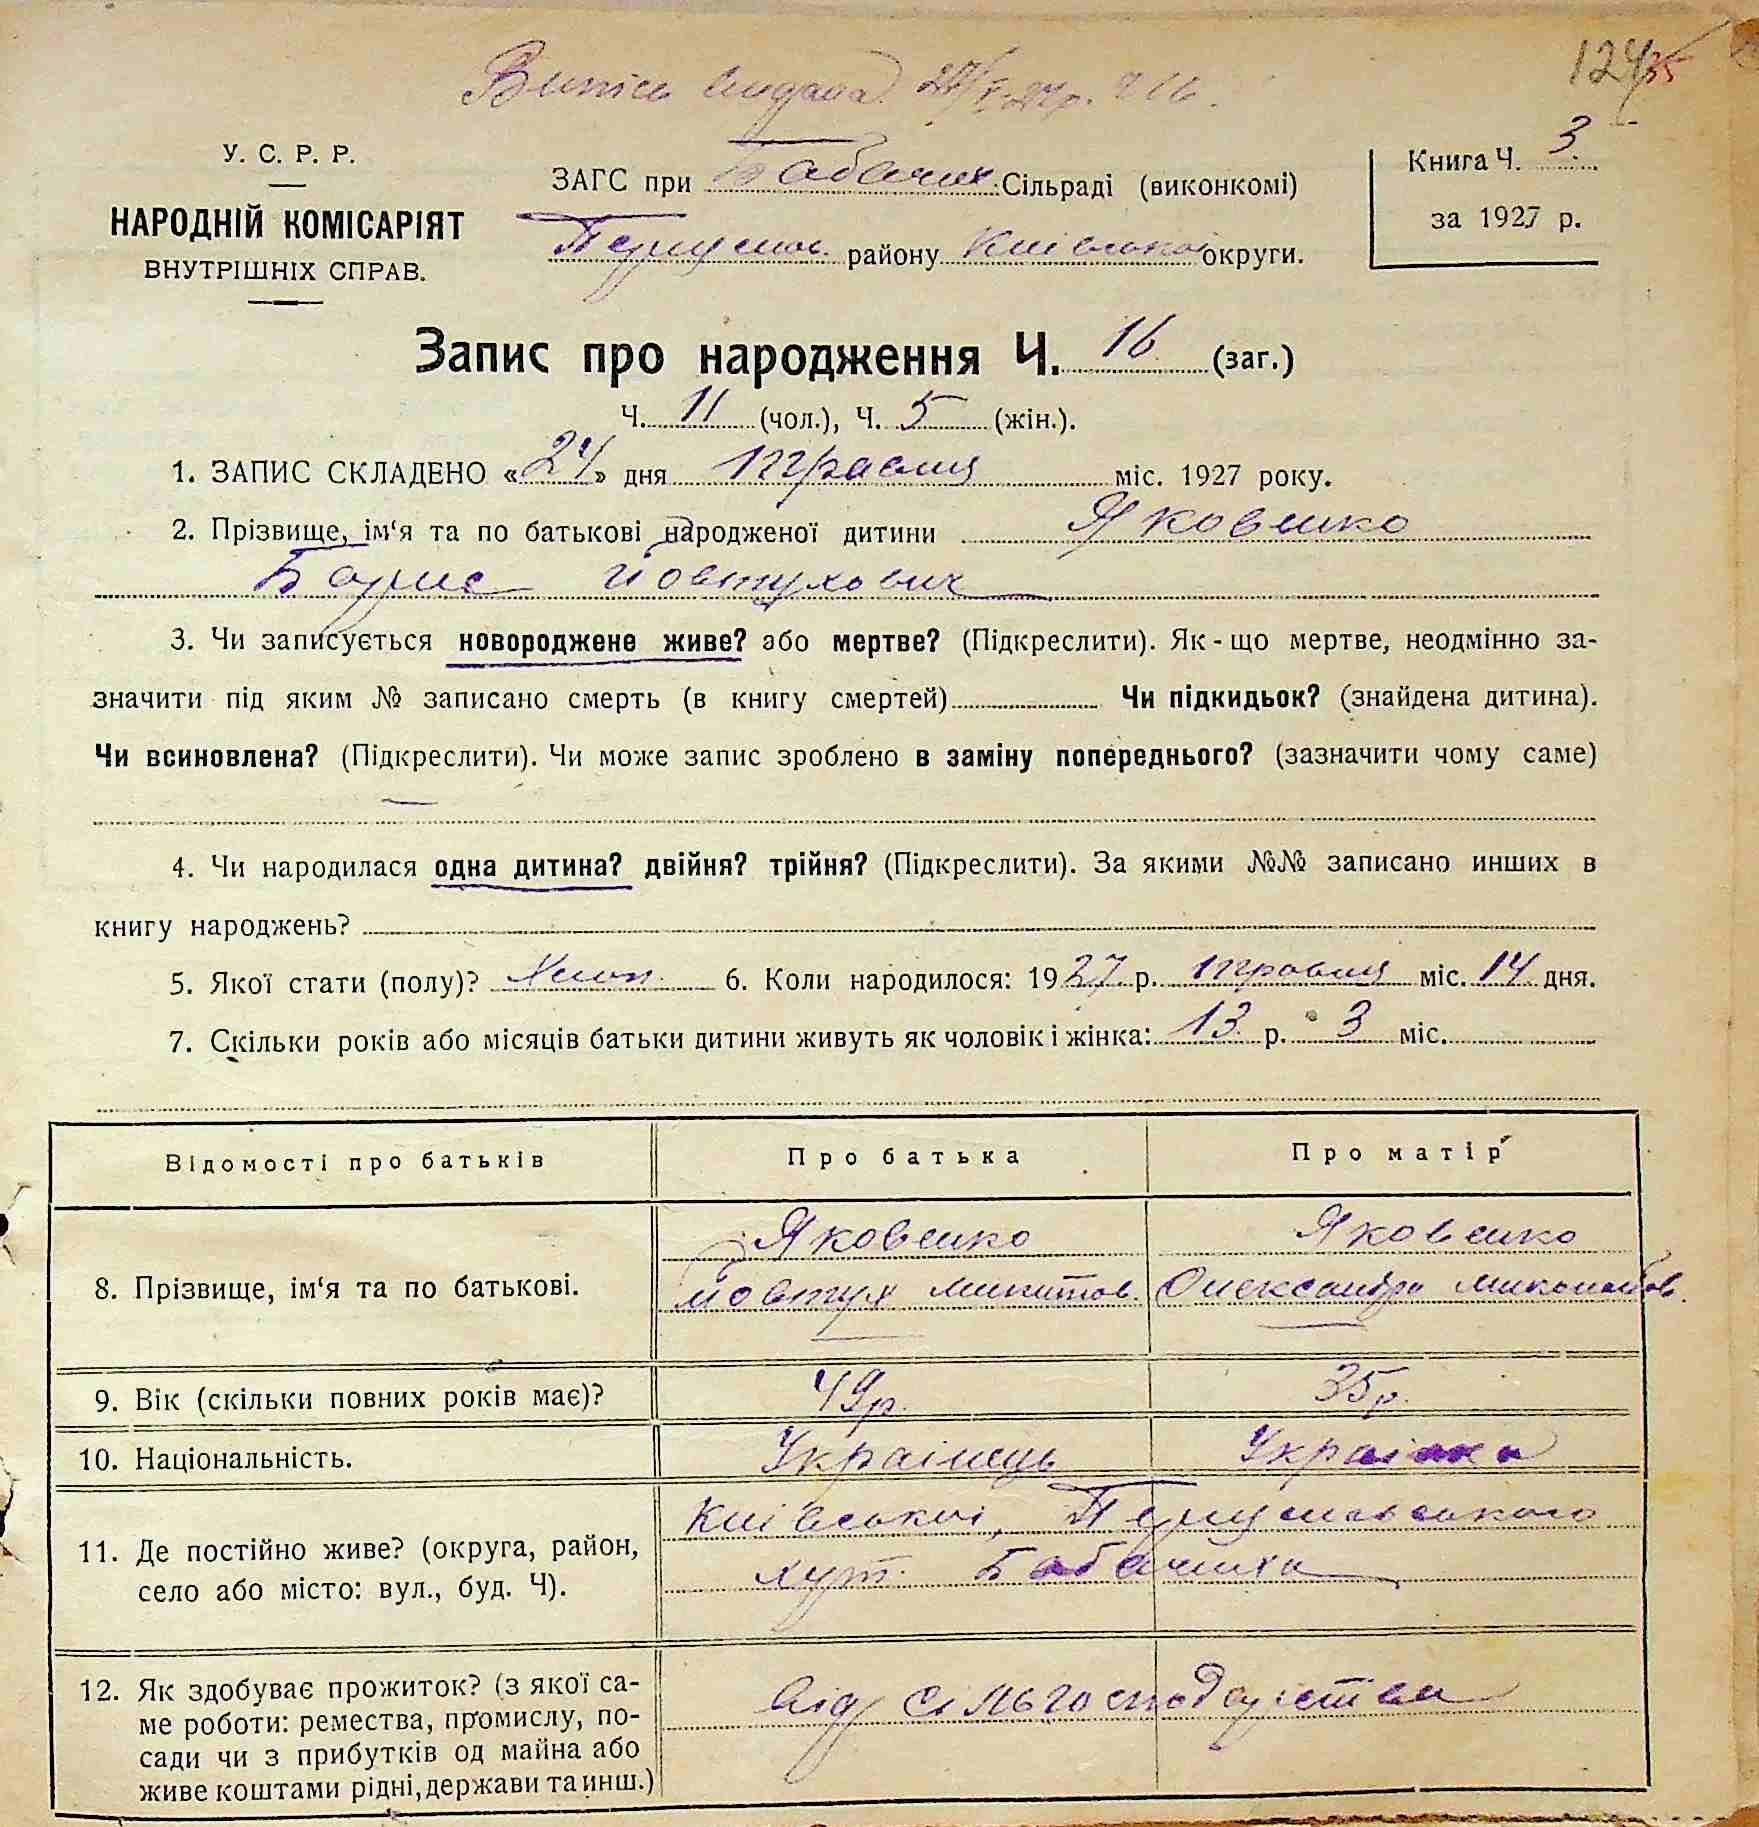 Випись видана 24/V-27р. Ч 16.
124 35
У. С. Р. Р.
НАРОДНІЙ КОМІСАРІЯТ
ВНУТРІШНІХ СПРАВ.
ЗАГС при Бабачих. Сільраді (виконкомі)
району Київської округи.
Книга Ч. 3.
за 1927 р.
Запис про народження Ч. 16 (заг.)
Ч. 11 (чол.), Ч. 5 (жін.).
1. ЗАПИС СКЛАДЕНО «24» дня травня міс. 1927 року.
2. Прізвище, ім‘я та по батькові народженої дитини Яковенко
Борис Йовтухович
3. Чи записується новороджене живе? або мертве? (Підкреслити). Як-що мертве, неодмінно за-
значити під яким № записано смерть (в книгу смертей) Чи підкидьок? (знайдена дитина).
Чи всиновлена? (Підкреслити). Чи може запис зроблено в заміну попереднього? (зазначити чому саме)
4. Чи народилася одна дитина? двійня? трійня? (Підкреслити). За якими №№ записано инших в
книгу народжень?
5. Якої стати (полу)? Хлоп. 6. Коли народилося: 1927 р. травня міс. 14 дня.
7. Скільки років або місяців батьки дитини живуть як чоловік і жінка: 13 р. 3 міс.
Відомості про батьків Про батька Про матір
8. Прізвище, ім‘я та по батькові. Яковенко Яковенко
Йовтух Микитов. Олександра Миколаїов.
9. Вік (скільки повних років має)? 49р. 35р.
10. Національність. Українець Українка
11. Де постійно живе? (округа, район,
село або місто: вул., буд. Ч).
Київської, Переяславського
хут. Бабачиха
12. Як здобуває прожиток? (з якої са-
ме роботи: ремества, промислу, по-
сади чи з прибутків од майна або
живе коштами рідні, держави та инш.)
від сільгосподарства